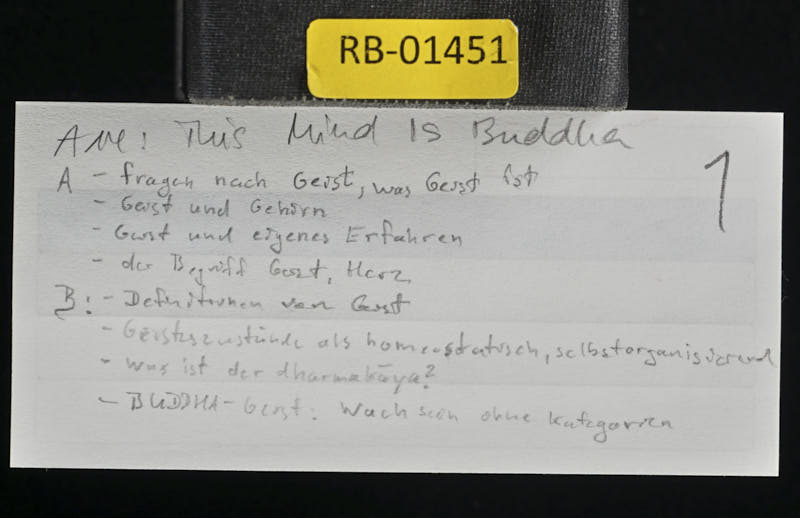 RB-01451
AME: This Mind Is Buddha
1
A - Fragen nach Geist, was Geist ist
- Geist und Gehirn
- Geist und eigenes Erfahren
- der Begriff Geist, Herz
B: - Definitionen von Geist
- Geisteszustände als homeostatisch, selbstorganisierend
- Was ist der dharmakāya?
- BUDDHA-Geist: Wach sein ohne Kategorien